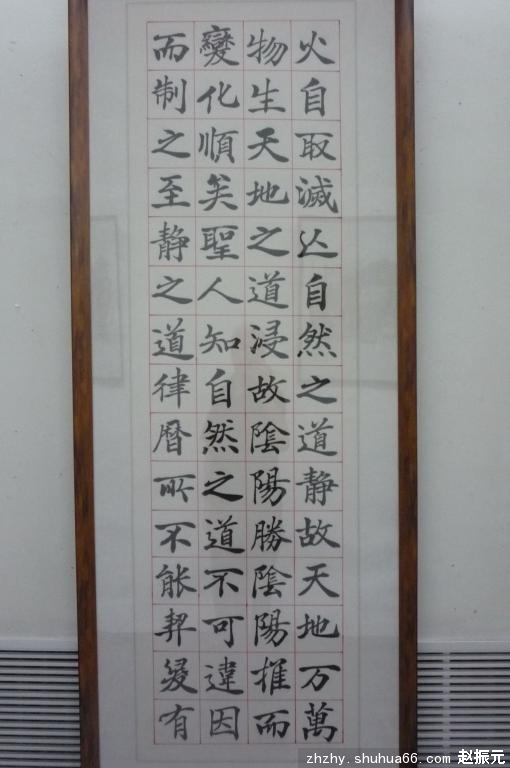 火自取滅亾自然之道静故天地万萬
物生天地之道浸故陰陽勝陰陽推而
變化順矣聖人知自然之道不可違因
而制之至静之道律曆所不能契爰有
zhzhy.shuhua66.com 赵振元